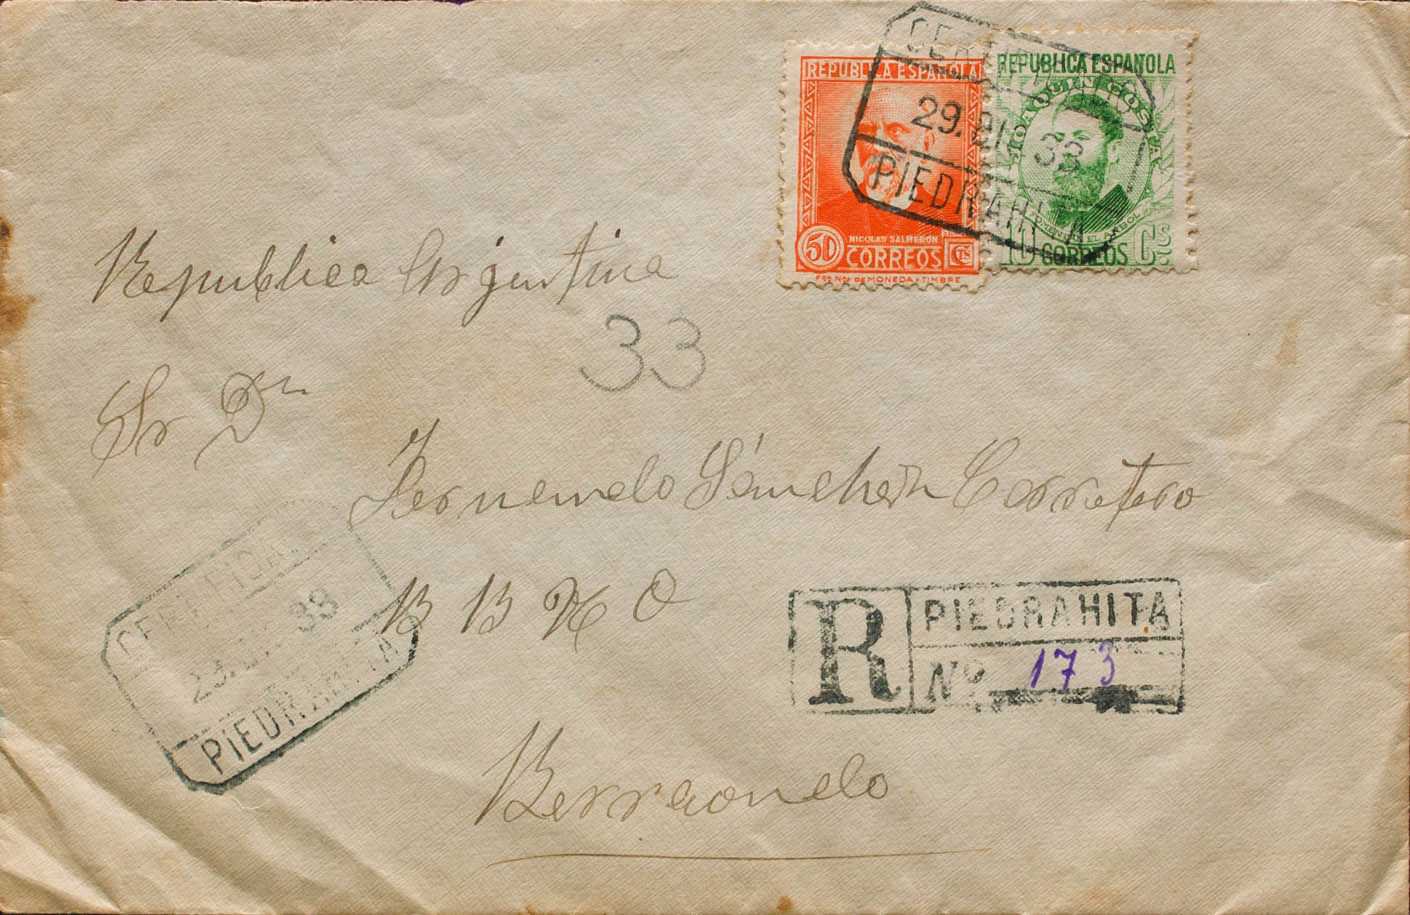 REPUBLICA ESPAÑOLA
NICOLAS SALMERON
50 CORREOS CTS
FCA NAL DE MONEDA Y TIMBRE
REPUBLICA ESPAÑOLA
JOAQUIN COSTA
10 CORREOS Cs
29. 33
PIEDRAHITA
Republica Argentina
33
Sr Dn
Fernando Sánchez Carretero
CERTIFICADO
33
PIEDRAHITA
R PIEDRAHITA
Nº 173
Berraondo